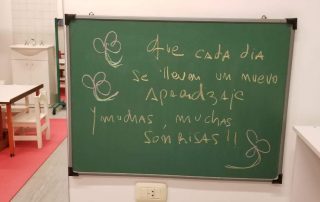 Que cada dia
se lleven un nuevo
Aprendizaje
Y muchas, muchas
sonrisas!!